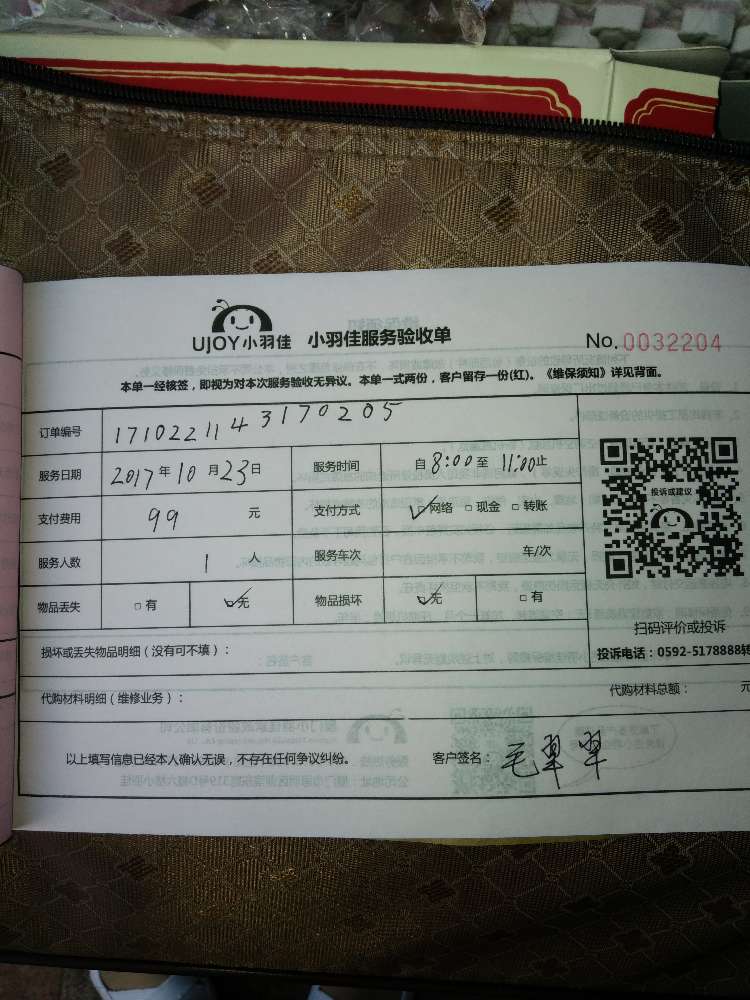 UJOY小羽佳 小羽佳服务验收单 No.0032204
本单一经核签，即视为对本次服务验收无异议。本单一式两份，客户留存一份(红)。《维保须知》详见背面。
订单编号 1710221143170205
服务日期 2017年10月23日 服务时间 自8:00至11:00止
支付费用 99 元 支付方式 ☑网络 □现金 □转账
服务人数 1 人 服务车次 车/次
物品丢失 □有 ☑无 物品损坏 ☑无 □有
投诉或建议
扫码评价或投诉
投诉电话：0592-5178888转
损坏或丢失物品明细（没有可不填）：
代购材料明细（维修业务）： 代购材料总额： 元
以上填写信息已经本人确认无误，不存在任何争议纠纷。 客户签名：毛翠翠